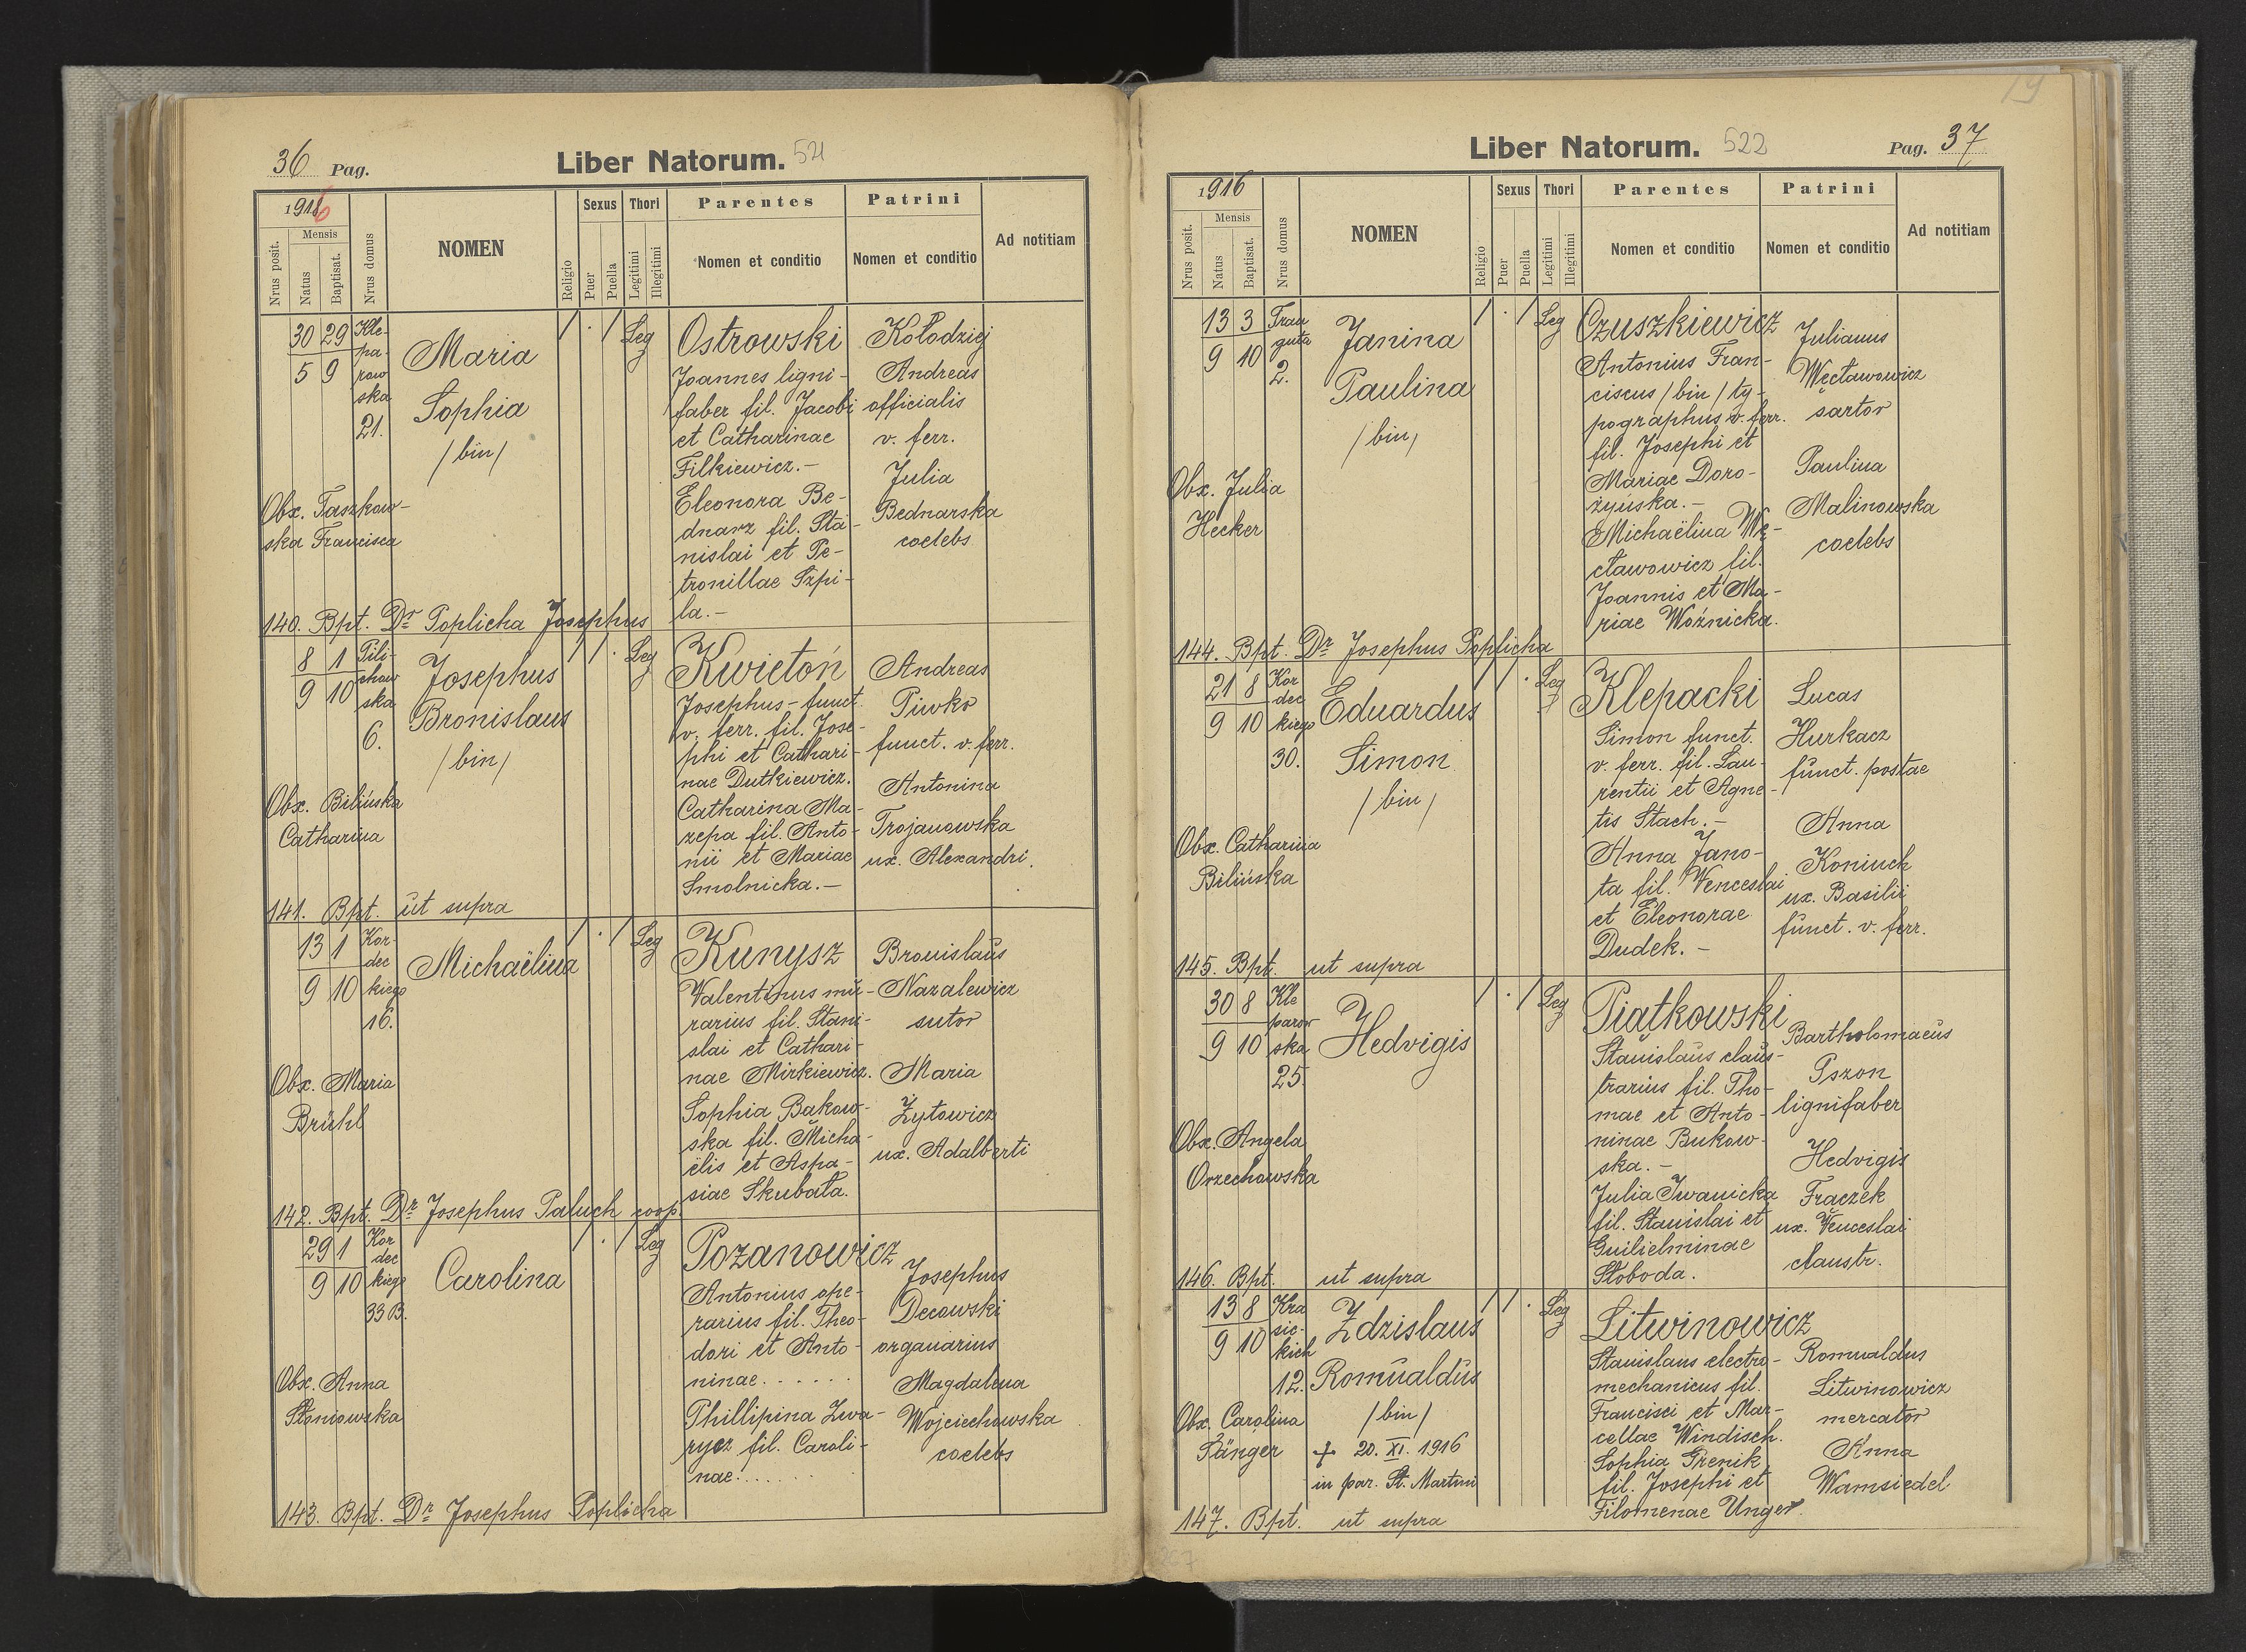 36 Pag.
Liber Natorum. 521
1916
Nrus posit.
Mensis
Natus
Baptisat.
Nrus domus
NOMEN
Religio
Sexus
Puer
Puella
Thori
Legitimi
Illegitimi
Parentes
Nomen et conditio
Patrini
Nomen et conditio
Ad notitiam
30 29
5 9
Kle-
pa-
row
ska
21.
Maria
Sophia
/bin/
Obx. Taszkow-
ska Francisca
/ . / Leg
Ostrowski
Joannes ligni-
faber fil. Jacobi
et Catharinae
Filkiewicz.-
Eleonora Be-
dnarz fil. Sta-
nislai et Pe-
tronillae Szpi-
la.-
Kołodziej
Andreas
officialis
v. ferr.
Julia
Bednarska
coelebs
140. Bpt. Dr Poplicha Josephus
8 1
9 10
Pili-
chow
ska
6.
Josephus
Bronislaus
/bin/
Obx. Bilińska
Catharina
/ / . Leg
Kwietoń
Josephus - funct.
v. ferr. fil. Jose-
phi et Cathari-
nae Dutkiewicz.
Catharina Ma-
zepa fil. Anto-
nii et Mariae
Smolnicka.-
Andreas
Piwko
funct. v. ferr.
Antonina
Trojanowska
ux. Alexandri.
141. Bpt. ut supra
13 1
9 10
Kor-
dec
kiego
16.
Michaëlina
Obx. Maria
Brühl
/ . / Leg
Kunysz
Valentinus mu-
rarius fil. Stani-
slai et Cathari-
nae Mirkiewicz.
Sophia Bakow-
ska fil. Micha-
ëlis et Aspa-
siae Skubata.
Bronislaus
Nazalewicz
sutor
Maria
Żytowicz
ux. Adalberti
142. Bpt. Dr Josephus Paluch coop.
29 1
9 10
Kor
dec
kiego
33 B.
Carolina
Obx. Anna
Słoniowska
/ . / Leg
Pozanowicz
Antonius ope-
rarius fil. Theo-
dori et Anto-
ninae......
Phillipina Zwa-
rycz fil. Caroli-
nae.......
Josephus
Decowski
organarius
Magdalena
Wojciechowska
coelebs
143. Bpt. Dr Josephus Poplicha
19
Liber Natorum. 522
Pag. 37
1916
Nrus posit.
Mensis
Natus
Baptisat.
Nrus domus
NOMEN
Religio
Sexus
Puer
Puella
Thori
Legitimi
Illegitimi
Parentes
Nomen et conditio
Patrini
Nomen et conditio
Ad notitiam
13 3
9 10
Trau
guta
2.
Janina
Paulina
/bin/
Obx. Julia
Hecker
/ . / Leg
Czuszkiewicz
Antonius Fran-
ciscus /bin/ ty-
pographus v. ferr.
fil. Josephi et
Mariae Doro-
żyńska.-
Michaëlina Wę-
cławowicz fil.
Joannis et Ma-
riae Woźnicka.
Julianus
Węcławowicz
sartor
Paulina
Malinowska
coelebs
144. Bpt. Dr Josephus Poplicha
21 8
9 10
Kor
dec
kiego
30.
Eduardus
Simon
/bin/
Obx. Catharina
Bilińska
/ / . Leg
Klepacki
Simon funct.
v. ferr. fil. Lau-
rentii et Agne-
tis Stach.-
Anna Jano-
ta fil. Venceslai
et Eleonorae
Dudek.-
Lucas
Hurkacz
funct. postae
Anna
Koniuch
ux. Basilii
funct. v. ferr.
145. Bpt. ut supra
30 8
9 10
Kle
parow
ska
25.
Hedvigis
Obx. Angela
Orzechowska
/ . / Leg
Piątkowski
Stanislaus claus-
trarius fil. Tho-
mae et Anto-
ninae Bukow-
ska.-
Julia Iwanicka
fil. Stanislai et
Guilielminae
Słoboda.
Bartholomaeus
Pszon
lignifaber
Hedvigis
Fraczek
ux. Venceslai
claustr.
146. Bpt. ut supra
13 8
9 10
Kra
sic-
kich
12.
Zdzislaus
Romualdus
/bin/
Obx. Carolina
Sänger
+ 20. XI. 1916
in par. St. Martini
/ / . Leg
Litwinowicz
Stanislaus electro-
mechanicus fil.
Francisci et Mar-
cellae Windisch.
Sophia Grenik
fil. Josephi et
Filomenae Unger.
Romualdus
Litwinowicz
mercator
Anna
Wamsiedel
147. Bpt. ut supra